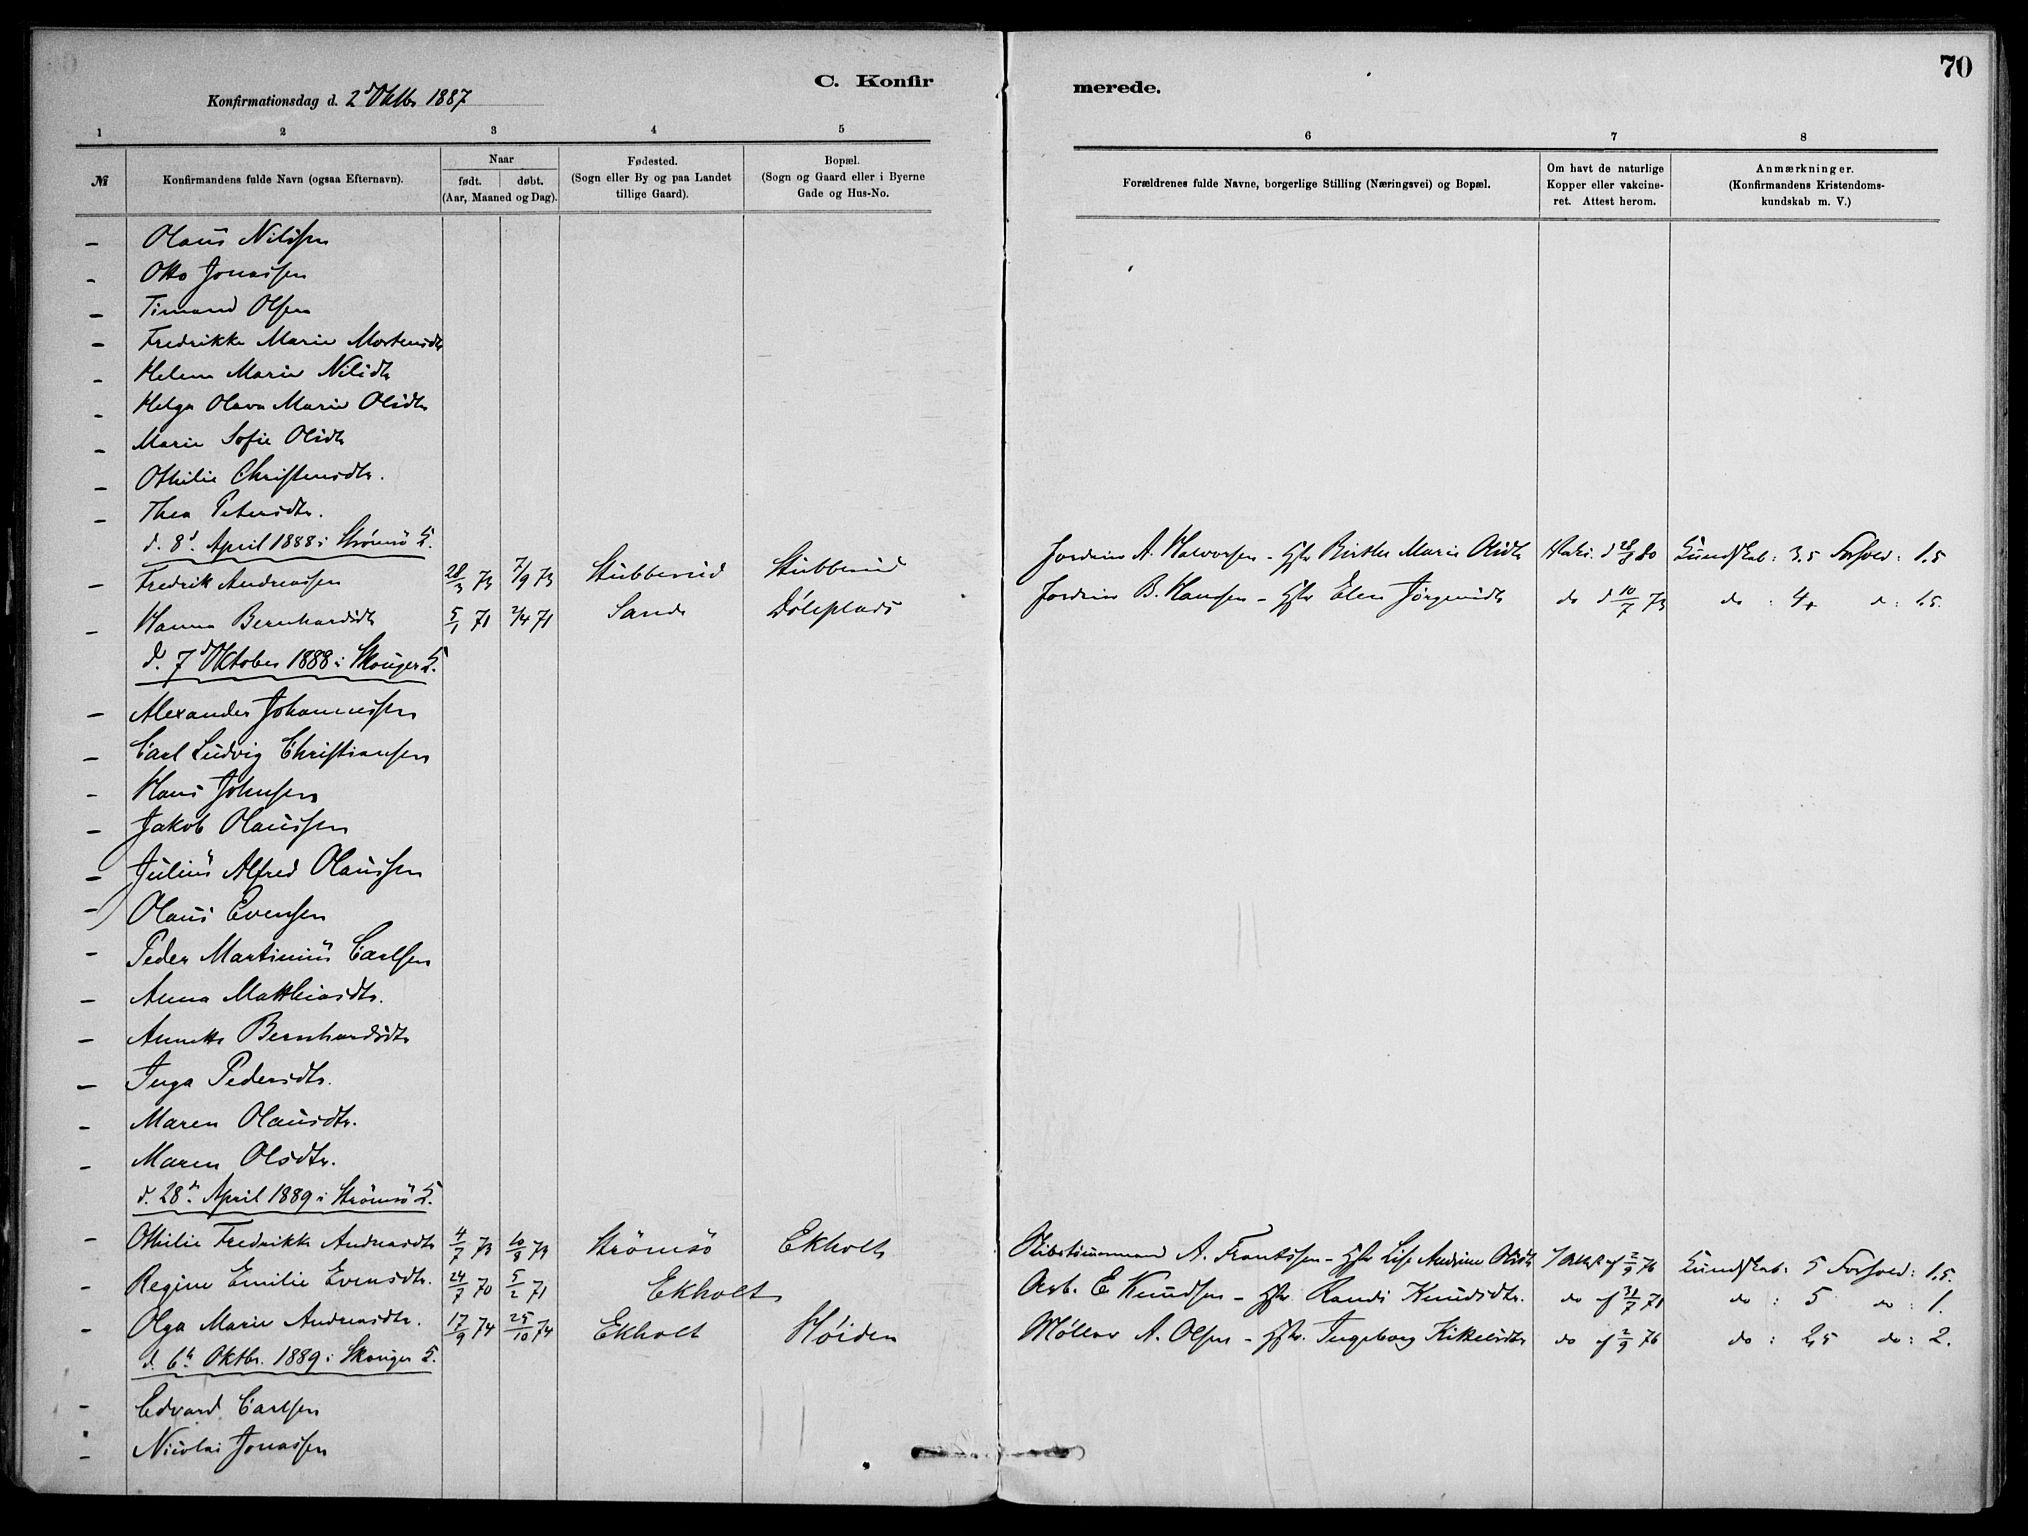 70
C. Konfir merede.
Konfirmationsdag d. 2d Oktbr 1887
1 2 3 4 5 6 7 8
№
Konfirmandens fulde Navn (ogsaa Efternavn).
Naar
født. døbt.
(Aar, Maaned og Dag).
Fødested.
(Sogn eller By og paa Landet
tillige Gaard).
Bopæl.
(Sogn og Gaard eller i Byerne
Gade og Hus-No.
Forældrenes fulde Navne, borgerlige Stilling (Næringsvei) og Bopæl.
Om havt de naturlige
Kopper eller vakcine-
ret. Attest herom.
Anmærkninger.
(Konfirmandens Kristendoms-
kundskab m. V.)
– Olaus Nilssen
– Otto Jonassen
– Timand Olsen
– Fredrikke Marie Mortensdtr
– Helene Marie Nilsdtr
– Helga Olava Marie Olsdtr
– Marie Sofie Olsdtr
– Othilie Christensdtr.
– Thea Petersdtr.
d. 8d April 1888 i Strømsø K.
– Fredrik Andreassen 28/3 73 7/9 73 Stubberud Stubberud Jordeier A. Halvorsen – Hstr Birthe Marie Olsdtr Vaks. d 28/8 80 Kundskab: 3,5 Forhold: 1,5
– Hanna Bernhardsdtr 5/1 71 2/4 71 Sande Døleplads Jordeier B. Hansen – Hstr Elen Jørgensdtr do d 10/7 73 do : 4, d: 1,5.
d. 7d Oktober 1888 i Skouger K.
– Alexander Johannessen
– Carl Ludvig Christiansen
– Hans Johnsen
– Jakob Olaussen
– Julius Alfred Olaussen
– Olaus Evensen
– Peder Martinius Carlsen
– Anna Matthiasdtr.
– Annette Bernhardsdtr
– Inga Pedersdtr.
– Maren Olausdtr.
– Maren Olsdtr.
d. 28d April 1889 i Strømsø K.
– Othilie Fredrikke Andreasdtr 4/7 73 10/8 73 Strømsø Ekholt A. Frantssen – Hstr Lise Andrine Olsdtr Vaks. af 2/9 76 Kundskab: 5 Forhold: 1,5.
– Regine Emilie Evensdtr. 24/7 70 5/2 71 Ekholt Arb. E Knudsen – Hstr. Randi Knudsdtr. do af 31/7 71 do : 5 do : 1.
– Olga Marie Andreasdtr. 17/9 74 25/10 74 Ekholt Høiden Møller A. Olsen – Hstr. Ingeborg Kikelsdtr do af 2/9 76 do : 2,5 do : 2.
d. 6te Oktbr. 1889 i Skouger K.
– Edvard Carlsen
– Nicolai Jonassen